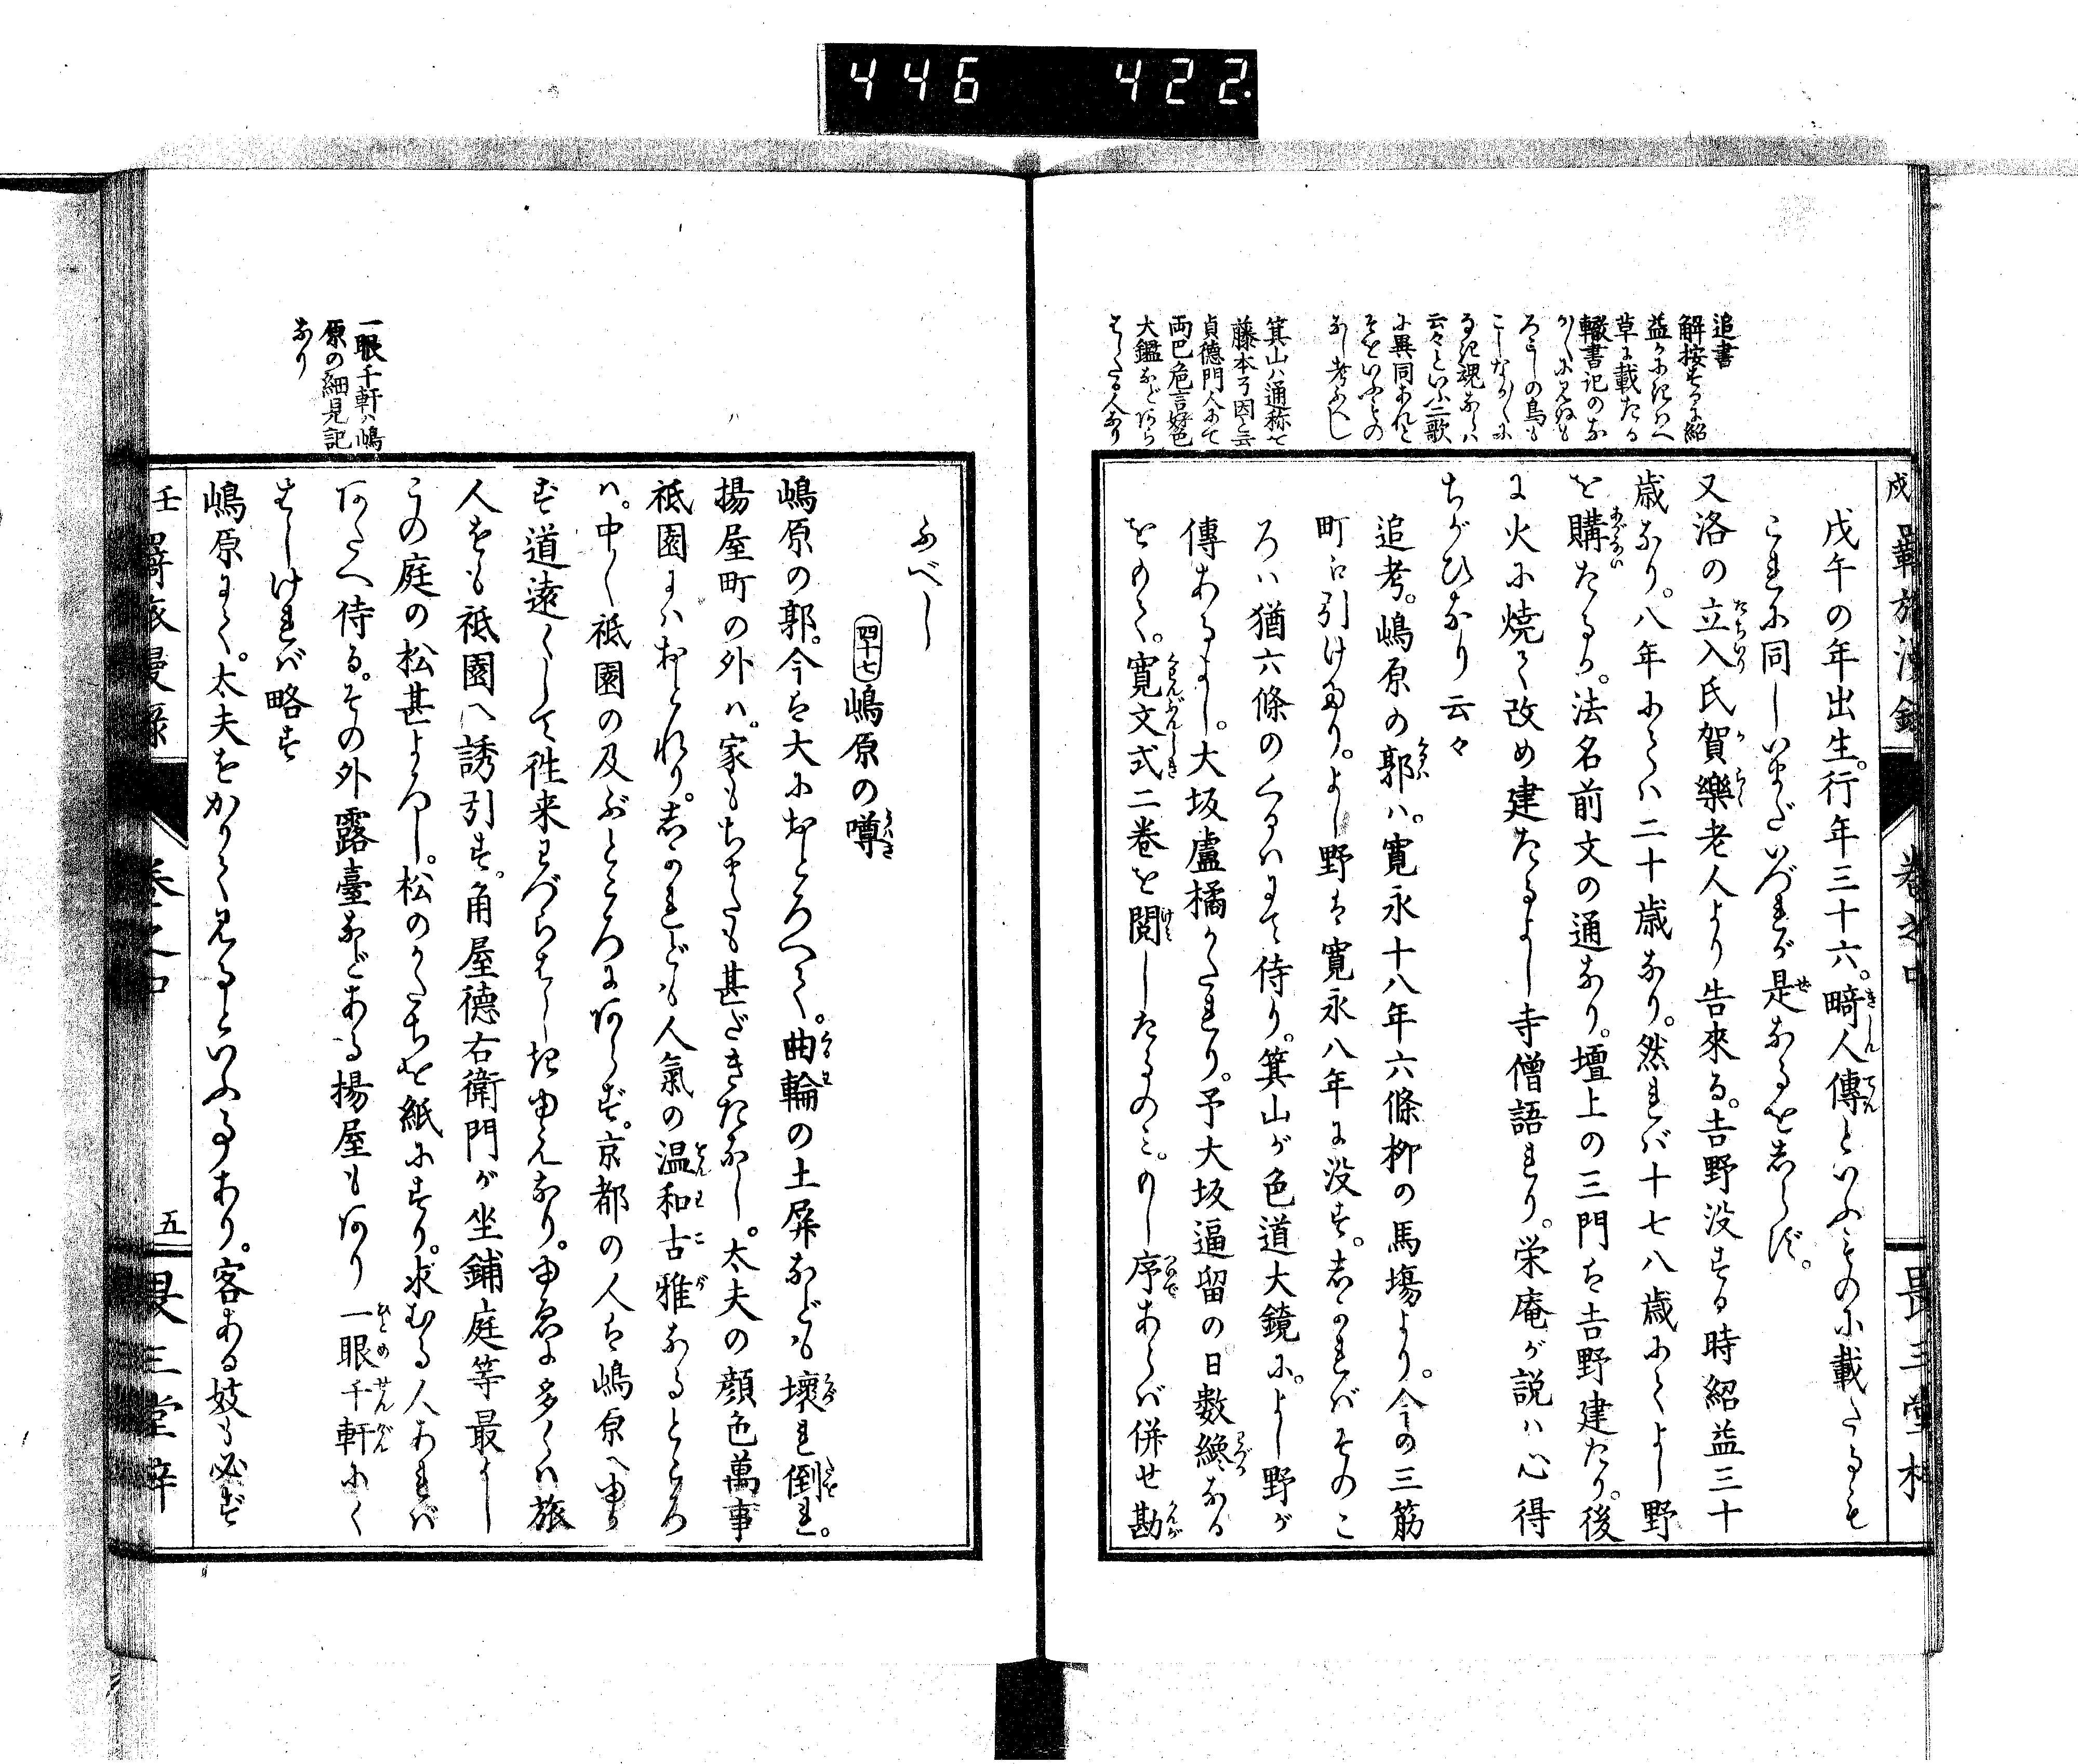 446 422.
追書
解按するに紹
益かにぎはへ
草に載たる
轍書記のな
ろこしの鳥も
こしなからくに
る死魂ならハ
云々といふ二歌
に異同あれと
そをいふもの
なし考ふへし
箕山ハ通称ニて
藤本了因と云
貞徳門人にて
両巴巵言好色
大鑑などにあら
はしたる人なり
戊午の年出生。行年三十六。畸人傳といふものに載たるも
これに同しいまだいづれが是なるをしらず。
又洛の立入氏賀樂老人より告來る。吉野没する時紹益三十
歳なり。八年にてハ二十歳なり。然れバ十七八歳にてよし野
を購たるか。法名前文の通なり。壇上の三門は吉野建たり。後
に火に焼て改め建たるよし寺僧語れり。栄庵が説ハ心得
ちがひなり云々
追考。嶋原の郭ハ。寛永十八年六條柳の馬塲より。今の三筋
町に引けたり。よし野は寛永八年に没す。しかれバそのこ
ろハ猶六條のくるハにて侍り。箕山が色道大鏡に。よし野が
傳あるよし。大坂盧橘かたれり。予大坂逼留の日数纔なる
をもて。寛文式二巻を閲したるのミ。のし序あらバ併せ勘
ふべし
四十七 嶋原の噂
嶋原の郭。今は大におとろへて。曲輪の土屏なども壊れ倒れ。
揚屋町の外ハ。家もちまたも甚だきたなし。太夫の顔色萬事
祇園にハおとれり。しかれども人氣の温和古雅なるところ
ハ。中々祇園の及ぶところにあらず。京都の人は嶋原へゆか
ず道遠くして徃来わづらはしきゆえなり。ゆゑに多くハ旅
人をも祇園へ誘引す。角屋德右衛門が坐鋪庭等最よし
この庭の松甚よろし。松のかたちを紙にすり。求むる人あれバ
あたへ侍る。その外露臺などある揚屋もあり一眼千軒にく
はしけれバ略す
嶋原にて。太夫をかりて見るといふ事あり。客ある妓も必ず
一眼千軒ハ嶋
原の細見記
なり
壬 羇旅漫録 巻之中 五 畏三堂梓